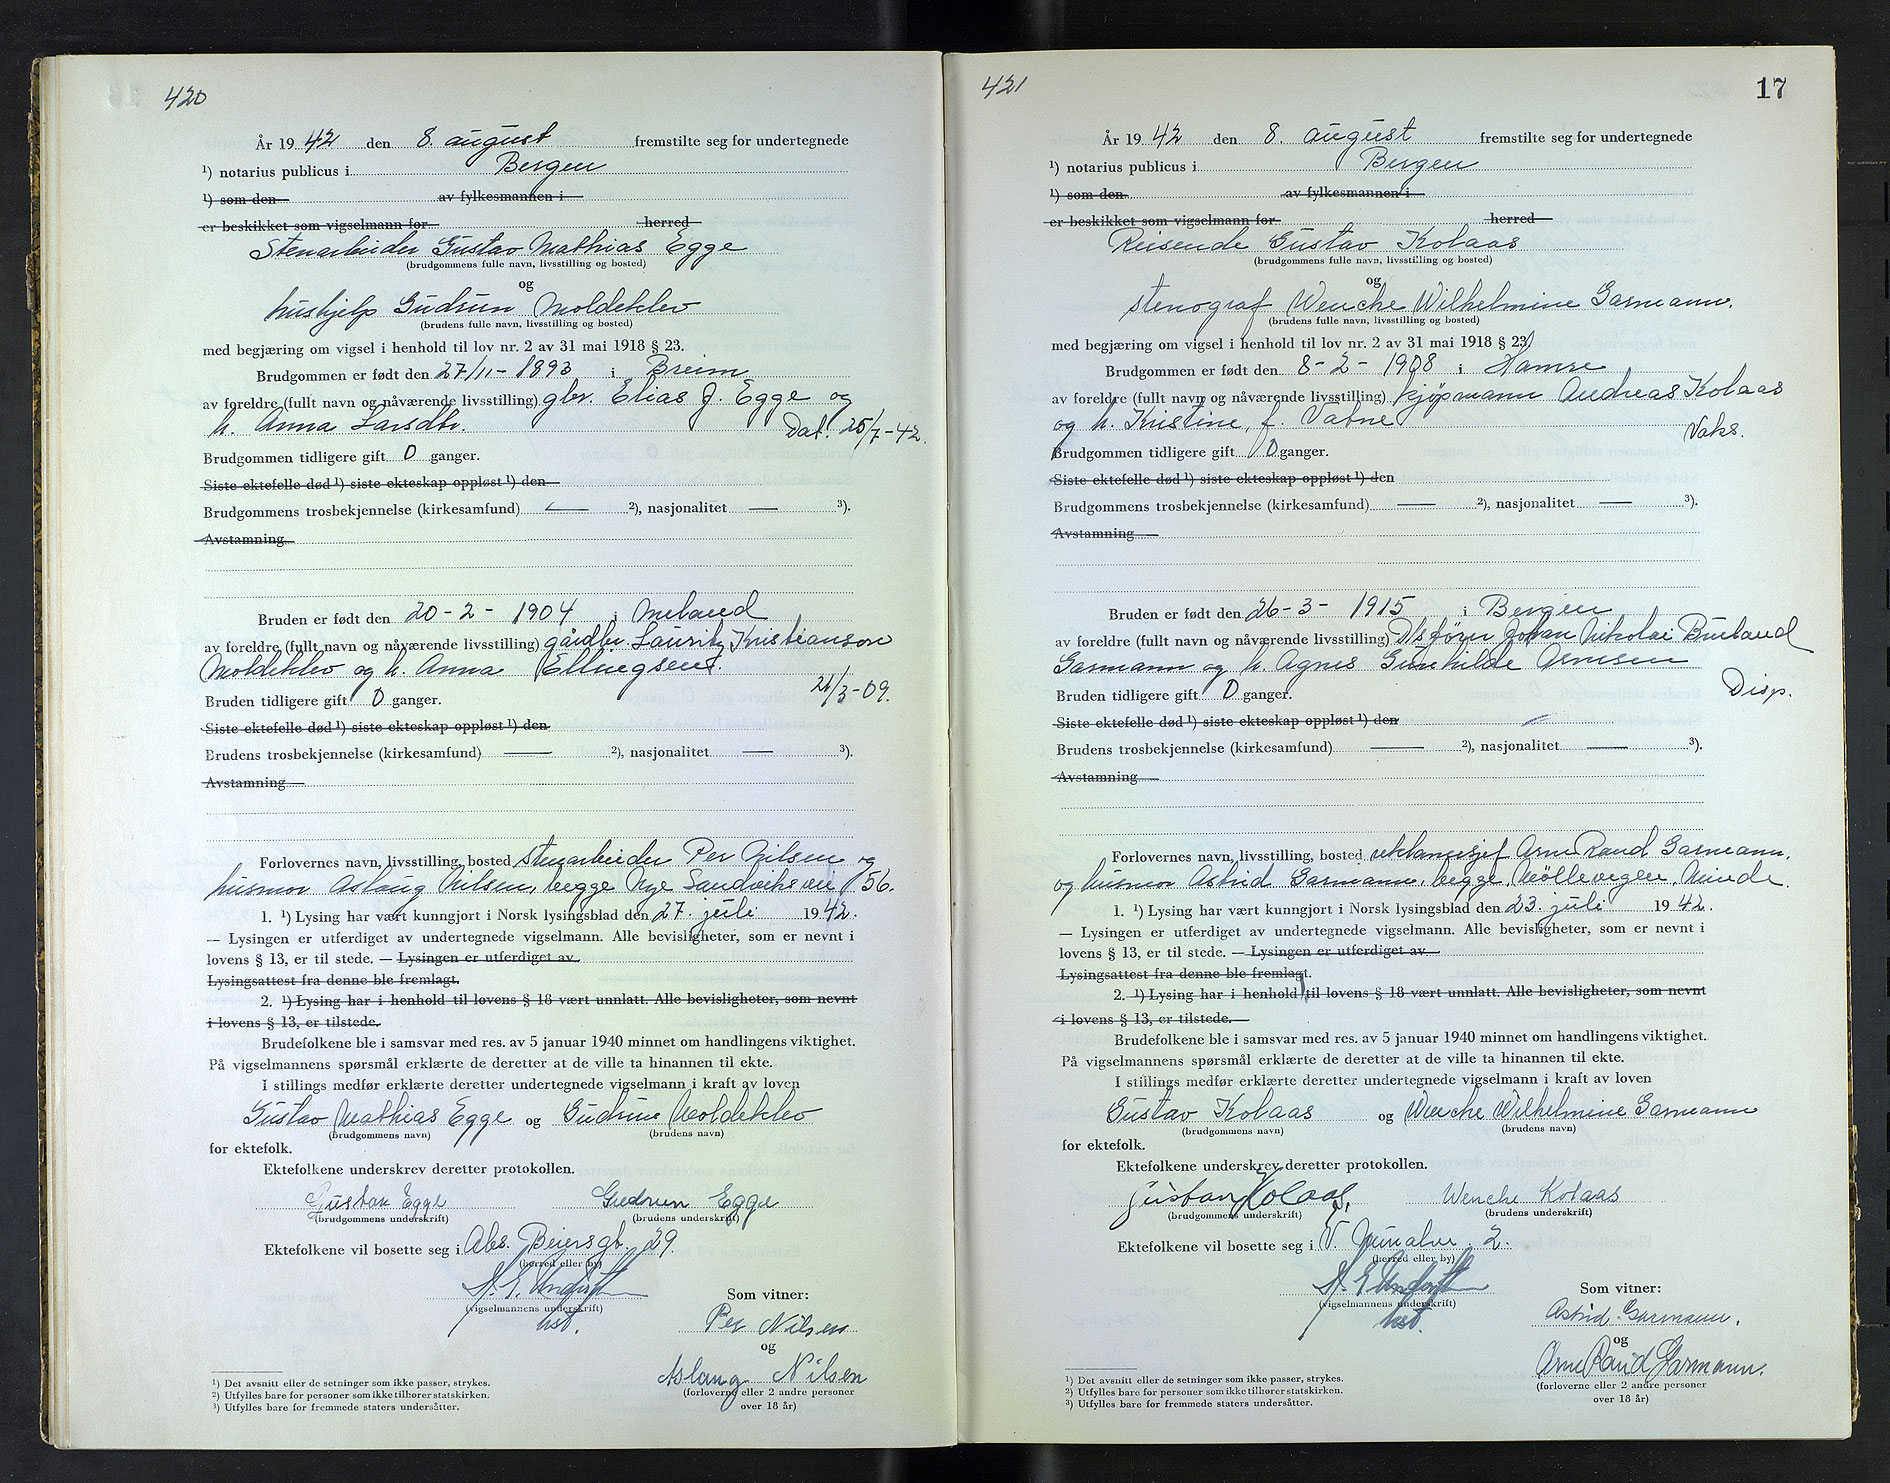 420
År 19 42 den 8. august fremstilte seg for undertegnede
¹) notarius publicus i Bergen
¹) som den av fylkesmannen i
er beskikket som vigselmann for herred
Stenarbeider Gustav Mathias Egge
(brudgommens fulle navn, livsstilling og bosted)
og
hushjelp Gudrun Moldeklev
(brudens fulle navn, livsstilling og bosted)
med begjæring om vigsel i henhold til lov nr. 2 av 31 mai 1918 § 23.
Brudgommen er født den 27/11 - 1893 i Breim
av foreldre (fullt navn og nåværende livsstilling) gbr. Elias J. Egge og
h. Anna Larsdtr.
Dat. 25/7-42.
Brudgommen tidligere gift 0 ganger.
Siste ektefelle død ¹) siste ekteskap oppløst ¹) den
Brudgommens trosbekjennelse (kirkesamfund) — ²), nasjonalitet — ³).
Avstamning
Bruden er født den 20 - 2 - 1904 i Meland
av foreldre (fullt navn og nåværende livsstilling) gårdbr. Lauritz Kristianson
Moldeklev og h. Anna Ellingsen.
21/3-09.
Bruden tidligere gift 0 ganger.
Siste ektefelle død ¹) siste ekteskap oppløst ¹) den
Brudens trosbekjennelse (kirkesamfund) — ²), nasjonalitet — ³).
Avstamning
Forlovernes navn, livsstilling, bosted stenarbeider Per Nilsen og
husmor Aslaug Nilsen, begge Nye Sandviksvei 56.
1. ¹) Lysing har vært kunngjort i Norsk lysingsblad den 27. juli 19 42.
— Lysingen er utferdiget av undertegnede vigselmann. Alle bevisligheter, som er nevnt i
lovens § 13, er til stede. — Lysingen er utferdiget av
Lysingsattest fra denne ble fremlagt.
2. ¹) Lysing har i henhold til lovens § 18 vært unnlatt. Alle bevisligheter, som nevnt
i lovens § 13, er tilstede.
Brudefolkene ble i samsvar med res. av 5 januar 1940 minnet om handlingens viktighet.
På vigselmannens spørsmål erklærte de deretter at de ville ta hinannen til ekte.
I stillings medfør erklærte deretter undertegnede vigselmann i kraft av loven
Gustav Mathias Egge og Gudrun Moldeklev
(brudgommens navn) (brudens navn)
for ektefolk.
Ektefolkene underskrev deretter protokollen.
Gustav Egge Gudrun Egge
(brudgommens underskrift) (brudens underskrift)
Ektefolkene vil bosette seg i Abs. Beiersgt. 29.
(herred eller by)
(vigselmannens underskrift)
Som vitner:
Per Nilsen
og
Aslaug Nilsen
(forloverne eller 2 andre personer
over 18 år)
¹) Det avsnitt eller de setninger som ikke passer, strykes.
²) Utfylles bare for personer som ikke tilhører statskirken.
³) Utfylles bare for fremmede staters undersåtter.
421
17
År 19 42 den 8. august fremstilte seg for undertegnede
¹) notarius publicus i Bergen
¹) som den av fylkesmannen i
er beskikket som vigselmann for herred
Reisende Gustav Kolaas
(brudgommens fulle navn, livsstilling og bosted)
og
stenograf Wenche Wilhelmine Garmann.
(brudens fulle navn, livsstilling og bosted)
med begjæring om vigsel i henhold til lov nr. 2 av 31 mai 1918 § 23.
Brudgommen er født den 8 - 2 - 1908 i Hamre
av foreldre (fullt navn og nåværende livsstilling) kjøpmann Andreas Kolaas
og h. Kristine, f. Vatne
Vaks.
Brudgommen tidligere gift 0 ganger.
Siste ektefelle død ¹) siste ekteskap oppløst ¹) den
Brudgommens trosbekjennelse (kirkesamfund) — ²), nasjonalitet — ³).
Avstamning
Bruden er født den 26 - 3 - 1915 i Bergen
av foreldre (fullt navn og nåværende livsstilling) Johan Nikolai
Garmann og h. Agnes Gunhilde Arnesen
Disp.
Bruden tidligere gift 0 ganger.
Siste ektefelle død ¹) siste ekteskap oppløst ¹) den
Brudens trosbekjennelse (kirkesamfund) — ²), nasjonalitet — ³).
Avstamning
Forlovernes navn, livsstilling, bosted reklamesjef Arne Rand Garmann.
og husmor Astrid Garmann, begge, Møllevegen, Minde.
1. ¹) Lysing har vært kunngjort i Norsk lysingsblad den 23. juli 19 42.
— Lysingen er utferdiget av undertegnede vigselmann. Alle bevisligheter, som er nevnt i
lovens § 13, er til stede. — Lysingen er utferdiget av
Lysingsattest fra denne ble fremlagt.
2. ¹) Lysing har i henhold til lovens § 18 vært unnlatt. Alle bevisligheter, som nevnt
i lovens § 13, er tilstede.
Brudefolkene ble i samsvar med res. av 5 januar 1940 minnet om handlingens viktighet.
På vigselmannens spørsmål erklærte de deretter at de ville ta hinannen til ekte.
I stillings medfør erklærte deretter undertegnede vigselmann i kraft av loven
Gustav Kolaas og Wenche Wilhelmine Garmann
(brudgommens navn) (brudens navn)
for ektefolk.
Ektefolkene underskrev deretter protokollen.
Gustav Kolaas, Wenche Kolaas
(brudgommens underskrift) (brudens underskrift)
Ektefolkene vil bosette seg i V. 2.
(herred eller by)
(vigselmannens underskrift)
Som vitner:
Astrid Garmann.
og
Arne Rand Garmann.
(forloverne eller 2 andre personer
over 18 år)
¹) Det avsnitt eller de setninger som ikke passer, strykes.
²) Utfylles bare for personer som ikke tilhører statskirken.
³) Utfylles bare for fremmede staters undersåtter.